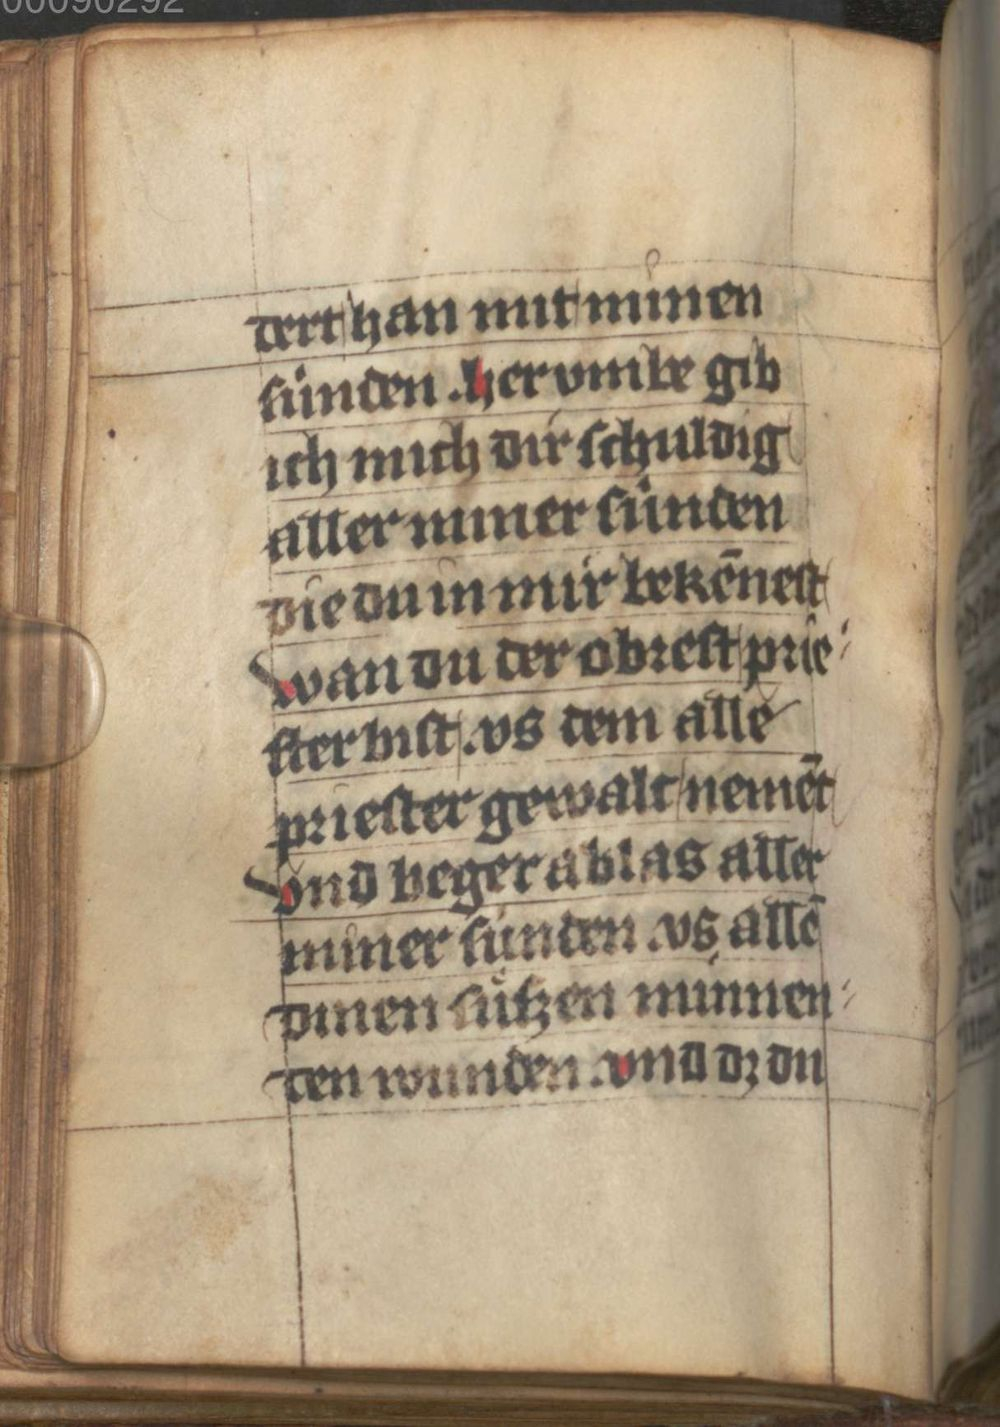 00090292
dert han mit minen
súnden .her vmbe gib
ich mich dir schuldig
aller miner súnden
die du in mir bekēnest
wan du der obrest prie
ster bist .vs dem alle
priester gewalt nemēt
vnd beger ablas aller
miner súnden .vs allē
dinen sûſzen minnen
den wunden .vnd dz du